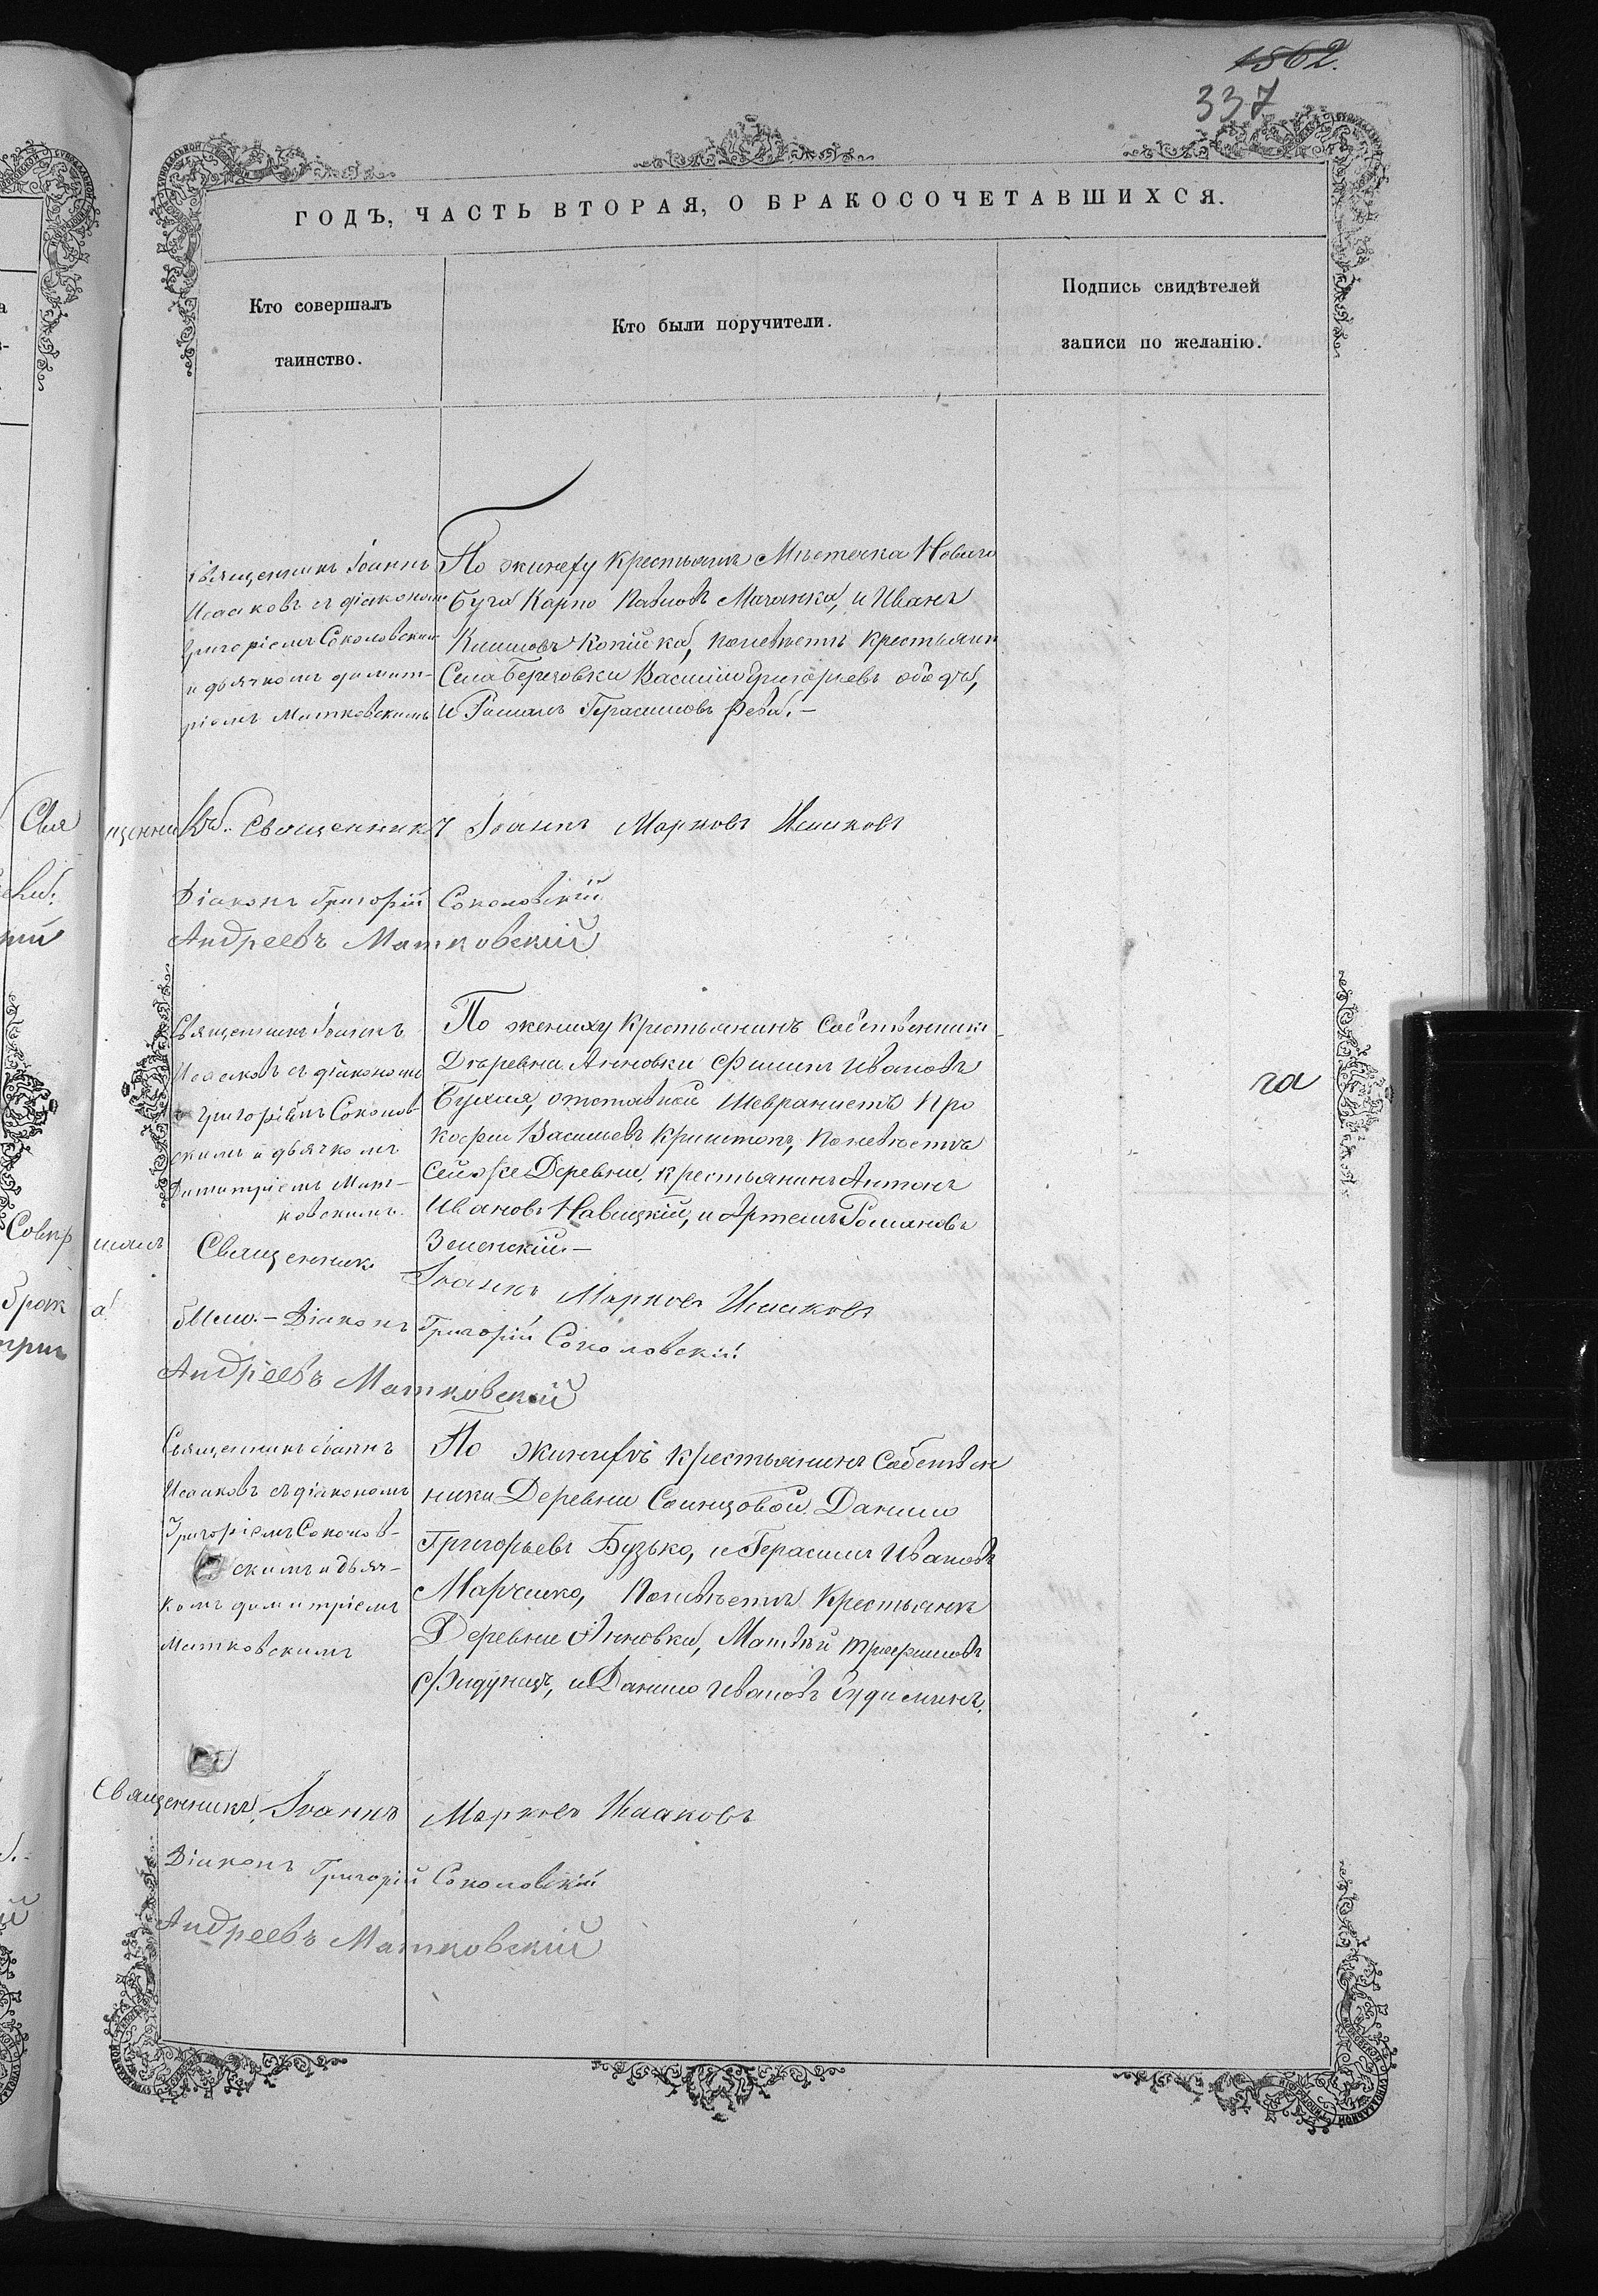 1562.
337
ГОДЪ, ЧАСТЬ ВТОРАЯ, О БРАКОСОЧЕТАВШИХСЯ.
Кто совершалъ
таинство.
Кто были поручители.
Подпись свидѣтелей
записи по желанію.
Священникъ Іоаннъ
Исаковъ съ діакономъ
Григоріемъ Соколовскимъ
и дьячкомъ димит-
ріемъ Матковскимъ
По жинеху крестьянъ Мѣстечка Новаго
Буга Карпо Павловъ Мачанка, и Иванъ
Климовъ Копійка, поневѣстѣ крестьянъ
Села Березовки Василій Григорьевъ
и Романъ Герасимовъ Рева.—
Священникъ Іоаннъ Марковъ Исаковъ
Діаконъ Григорій Соколовскій
Андреевъ Матковскій
Священникъ Іоаннъ
Исаковъ съ діакономъ
Григоріемъ Соколов-
скимъ и дьячкомъ
Димитріемъ Мат-
ковскимъ.
По жениху Крестьянинъ Собственникъ
Дѣревни Анновки Филипъ Ивановъ
отставной Про
кофий Васильевъ поневѣстѣ
сей же Деревни, крестьянинъ Антонъ
Ивановъ Навицкій, и Артемъ Романовъ
Зеленский—
га
Священникъ Іоаннъ Марковъ Исаковъ
Діаконъ Григорій Соколовскій
Андреевъ Матковскій
Священникъ Іоаннъ
Исаковъ съ діакономъ
Григоріемъ Соколов-
скимъ и дьяч-
комъ димитріемъ
Матковскимъ
По жинихѣ крестьянинъ Собствен
ники Деревни Солнцовой Данило
Григорьевъ Бузько, и Герасимъ Ивановъ
Марченко, поневѣстѣ Крестьянъ
Деревни Анновки, Матвѣй Трофимовъ
и Данило Ивановъ
Священникъ Іоаннъ Марковъ Исаковъ
Діаконъ Григорій Соколовскій
Андреевъ Матковскій